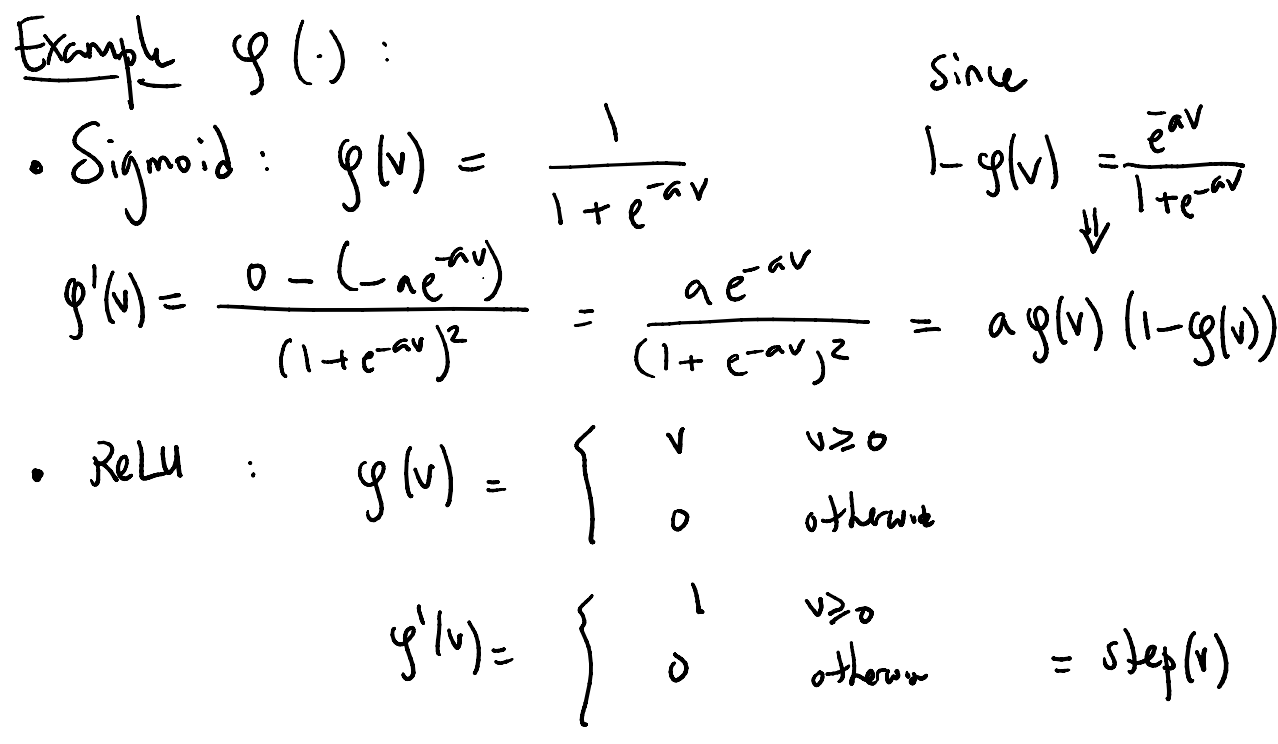 Example φ(·) :
• Sigmoid : φ(v) = 1 / (1 + e^{-av})
since 1 - φ(v) = e^{-av} / (1 + e^{-av})
⇓
φ'(v) = (0 - (-ae^{-av})) / (1 + e^{-av})^2 = a e^{-av} / (1 + e^{-av})^2 = a φ(v) (1 - φ(v))
• ReLU : φ(v) = { v v ≥ 0
0 otherwise
φ'(v) = { 1 v ≥ 0
0 otherwise = step(v)